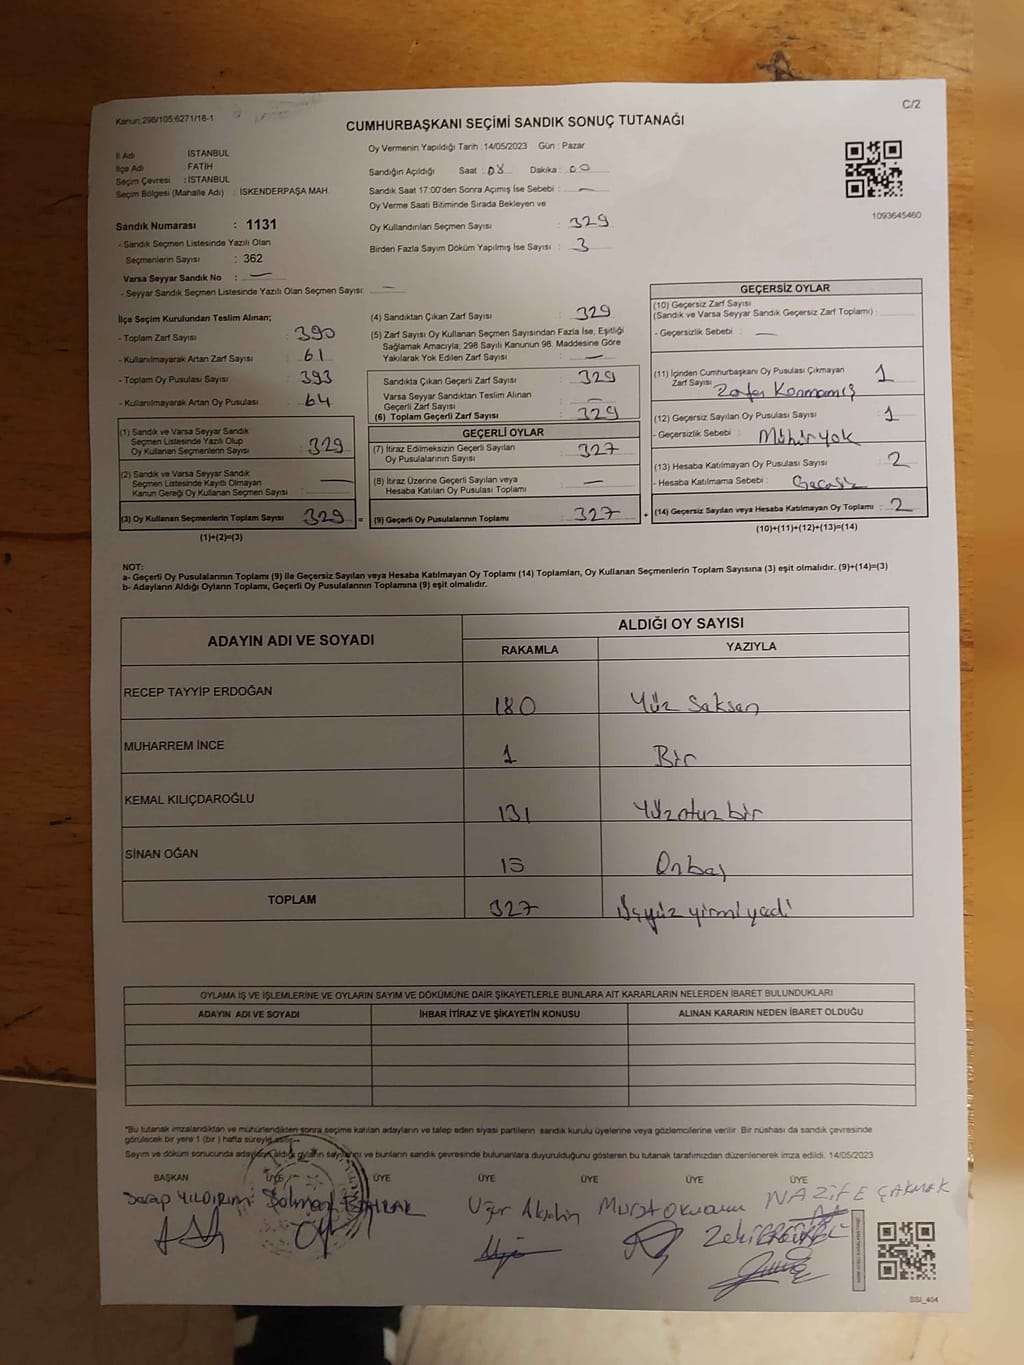 Kanun:298/105:6271/16-1
C/2
CUMHURBAŞKANI SEÇİMİ SANDIK SONUÇ TUTANAĞI
İl Adı : İSTANBUL
İlçe Adı : FATİH
Seçim Çevresi : İSTANBUL
Seçim Bölgesi (Mahalle Adı) : İSKENDERPAŞA MAH.
Sandık Numarası : 1131
- Sandık Seçmen Listesinde Yazılı Olan
Seçmenlerin Sayısı : 362
Varsa Seyyar Sandık No : —
- Seyyar Sandık Seçmen Listesinde Yazılı Olan Seçmen Sayısı: —
Oy Vermenin Yapıldığı Tarih : 14/05/2023 Gün : Pazar
Sandığın Açıldığı Saat : 08 Dakika : 00
Sandık Saat 17:00'den Sonra Açımış İse Sebebi : —
Oy Verme Saati Bitiminde Sırada Bekleyen ve
Oy Kullandırılan Seçmen Sayısı : 329
Birden Fazla Sayım Döküm Yapılmış İse Sayısı : 3
1093645460
İlçe Seçim Kurulundan Teslim Alınan;
- Toplam Zarf Sayısı : 390
- Kullanılmayarak Artan Zarf Sayısı : 61
- Toplam Oy Pusulası Sayısı : 393
- Kullanılmayarak Artan Oy Pusulası : 64
(1) Sandık ve Varsa Seyyar Sandık
Seçmen Listesinde Yazılı Olup
Oy Kullanan Seçmenlerin Sayısı : 329
(2) Sandık ve Varsa Seyyar Sandık
Seçmen Listesinde Kayıtlı Olmayan
Kanun Gereği Oy Kullanan Seçmen Sayısı : —
(3) Oy Kullanan Seçmenlerin Toplam Sayısı : 329 =
(1)+(2)=(3)
(4) Sandıktan Çıkan Zarf Sayısı : 329
(5) Zarf Sayısı Oy Kullanan Seçmen Sayısından Fazla İse, Eşitliği
Sağlamak Amacıyla; 298 Sayılı Kanunun 98. Maddesine Göre
Yakılarak Yok Edilen Zarf Sayısı : —
Sandıkta Çıkan Geçerli Zarf Sayısı : 329
Varsa Seyyar Sandıktan Teslim Alınan
Geçerli Zarf Sayısı : —
(6) Toplam Geçerli Zarf Sayısı : 329
GEÇERLİ OYLAR
(7) İtiraz Edilmeksizin Geçerli Sayılan
Oy Pusulalarının Sayısı : 327
(8) İtiraz Üzerine Geçerli Sayılan veya
Hesaba Katılan Oy Pusulası Toplamı : —
(9) Geçerli Oy Pusulalarının Toplamı : 327 +
GEÇERSİZ OYLAR
(10) Geçersiz Zarf Sayısı
(Sandık ve Varsa Seyyar Sandık Geçersiz Zarf Toplamı) :
- Geçersizlik Sebebi : —
(11) İçinden Cumhurbaşkanı Oy Pusulası Çıkmayan
Zarf Sayısı : 1
(12) Geçersiz Sayılan Oy Pusulası Sayısı : 1
- Geçersizlik Sebebi : Mühür yok
(13) Hesaba Katılmayan Oy Pusulası Sayısı : 2
- Hesaba Katılmama Sebebi :
(14) Geçersiz Sayılan veya Hesaba Katılmayan Oy Toplamı : 2
(10)+(11)+(12)+(13)=(14)
NOT:
a- Geçerli Oy Pusulalarının Toplamı (9) ile Geçersiz Sayılan veya Hesaba Katılmayan Oy Toplamı (14) Toplamları, Oy Kullanan Seçmenlerin Toplam Sayısına (3) eşit olmalıdır. (9)+(14)=(3)
b- Adayların Aldığı Oyların Toplamı, Geçerli Oy Pusulalarının Toplamına (9) eşit olmalıdır.
ADAYIN ADI VE SOYADI
ALDIĞI OY SAYISI
RAKAMLA YAZIYLA
RECEP TAYYİP ERDOĞAN 180 Yüz Seksen
MUHARREM İNCE 1 Bir
KEMAL KILIÇDAROĞLU 131 Yüzotuz bir
SİNAN OĞAN 15 Onbeş
TOPLAM 327 Üçyüz yirmi yedi
OYLAMA İŞ VE İŞLEMLERİNE VE OYLARIN SAYIM VE DÖKÜMÜNE DAİR ŞİKAYETLERLE BUNLARA AİT KARARLARIN NELERDEN İBARET BULUNDUKLARI
ADAYIN ADI VE SOYADI İHBAR İTİRAZ VE ŞİKAYETİN KONUSU ALINAN KARARIN NEDEN İBARET OLDUĞU
*Bu tutanak imzalandıktan ve mühürlendikten sonra seçime katılan adayların ve talep eden siyasi partilerin sandık kurulu üyelerine veya gözlemcilerine verilir. Bir nüshası da sandık çevresinde
görülecek bir yere 1 (bir ) hafta süreyle asılır.
Sayım ve döküm sonucunda adayların aldığı oyların sayılarını ve bunların sandık çevresinde bulunanlara duyurulduğunu gösteren bu tutanak tarafımızdan düzenlenerek imza edildi. 14/05/2023
BAŞKAN ÜYE ÜYE ÜYE ÜYE ÜYE ÜYE
Serap YILDIRIM
Uğur
Murat
NAZİFE ÇAKMAK
Zeki
SSİ_404